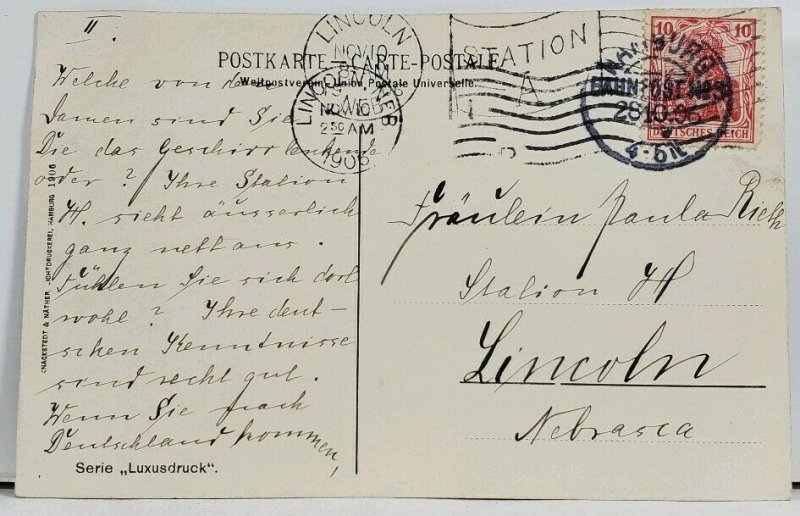 II.
POSTKARTE – CARTE-POSTALE
Weltpostverein Union Postale Universelle.
LINCOLN
NOV 10
STATION
A
LINCOLN NEB
NOV 10
2 30 AM
1906
HAMBURG
BAHNPOST
28.10.06
4-5N
10 10
DEUTSCHES REICH
Welche von den
Damen sind Sie
Die das Geschirr lenkende
oder? Ihre Station
H. sieht äusserlich
ganz nett aus.
Fühlen Sie sich dort
wohl? Ihre deut-
schen Kenntnisse
sind recht gut.
Wenn Sie nach
Deutschland kommen,
Fräulein Paula Rieth
Station H
Lincoln
Nebrasca
KNACKSTEDT & NÄTHER, LICHTDRUCKEREI, HAMBURG 1906
Serie „Luxusdruck“.